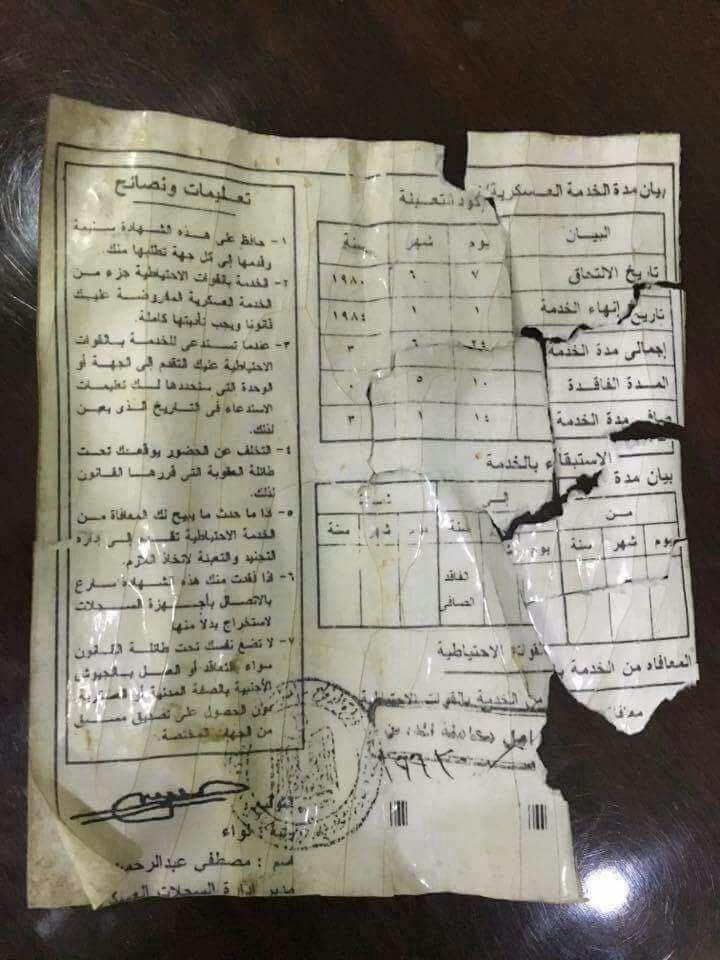 بيان مدة الخدمة العسكرية
كود التعبئة
البيان يوم شهر سنة
تاريخ الالتحاق ٧ ٦ ١٩٨٠
تاريخ إنهاء الخدمة ١ ١ ١٩٨٤
إجمالى مدة الخدمة ٢٤ ٦ ٣
المدة الفاقدة ١٠ ٥ ٠
صافى مدة الخدمة ١٤ ١ ٣
بيان مدة الاستبقاء بالخدمة
من إلى
يوم شهر سنة يوم سنة يوم شهر سنة
الفاقد
الصافى
المعافاه من الخدمة القوات الاحتياطية
من الخدمة بالقوات الاحتياطية
تعليمات ونصائح
١- حافظ على هذه الشهادة سليمة
وقدمها إلى كل جهة تطلبها منك.
٢- الخدمة بالقوات الاحتياطية جزء من
الخدمة العسكرية المفروضة عليك
قانونا ويجب تأديتها كاملة.
٣- عندما تستدعى للخدمة بالقوات
الاحتياطية عليك التقدم إلى الجهة أو
الوحدة التى ستحددها لك تعليمات
الاستدعاء فى التاريخ الذى يعين
لذلك.
٤- التخلف عن الحضور يوقعك تحت
طائلة العقوبة التى قررها القانون
لذلك.
٥- اذا ما حدث ما يبيح لك المعافاة من
الخدمة الاحتياطية تقدم إلى إدارة
التجنيد والتعبئة لاتخاذ اللازم.
٦- اذا فقدت منك هذه الشهادة سارع
بالاتصال بأجهزة السجلات
لاستخراج بدلا منها
٧- لا تضع نفسك تحت طائلة القانون
سواء التعاقد أو العمل بالجيوش
الأجنبية بالصفة المدنية أو العسكرية
دون الحصول على تصديق مسبق
من الجهات المختصة.
التوقيع
رتبة : لواء
اسم : مصطفى عبدالرحمن
مدير إدارة السجلات